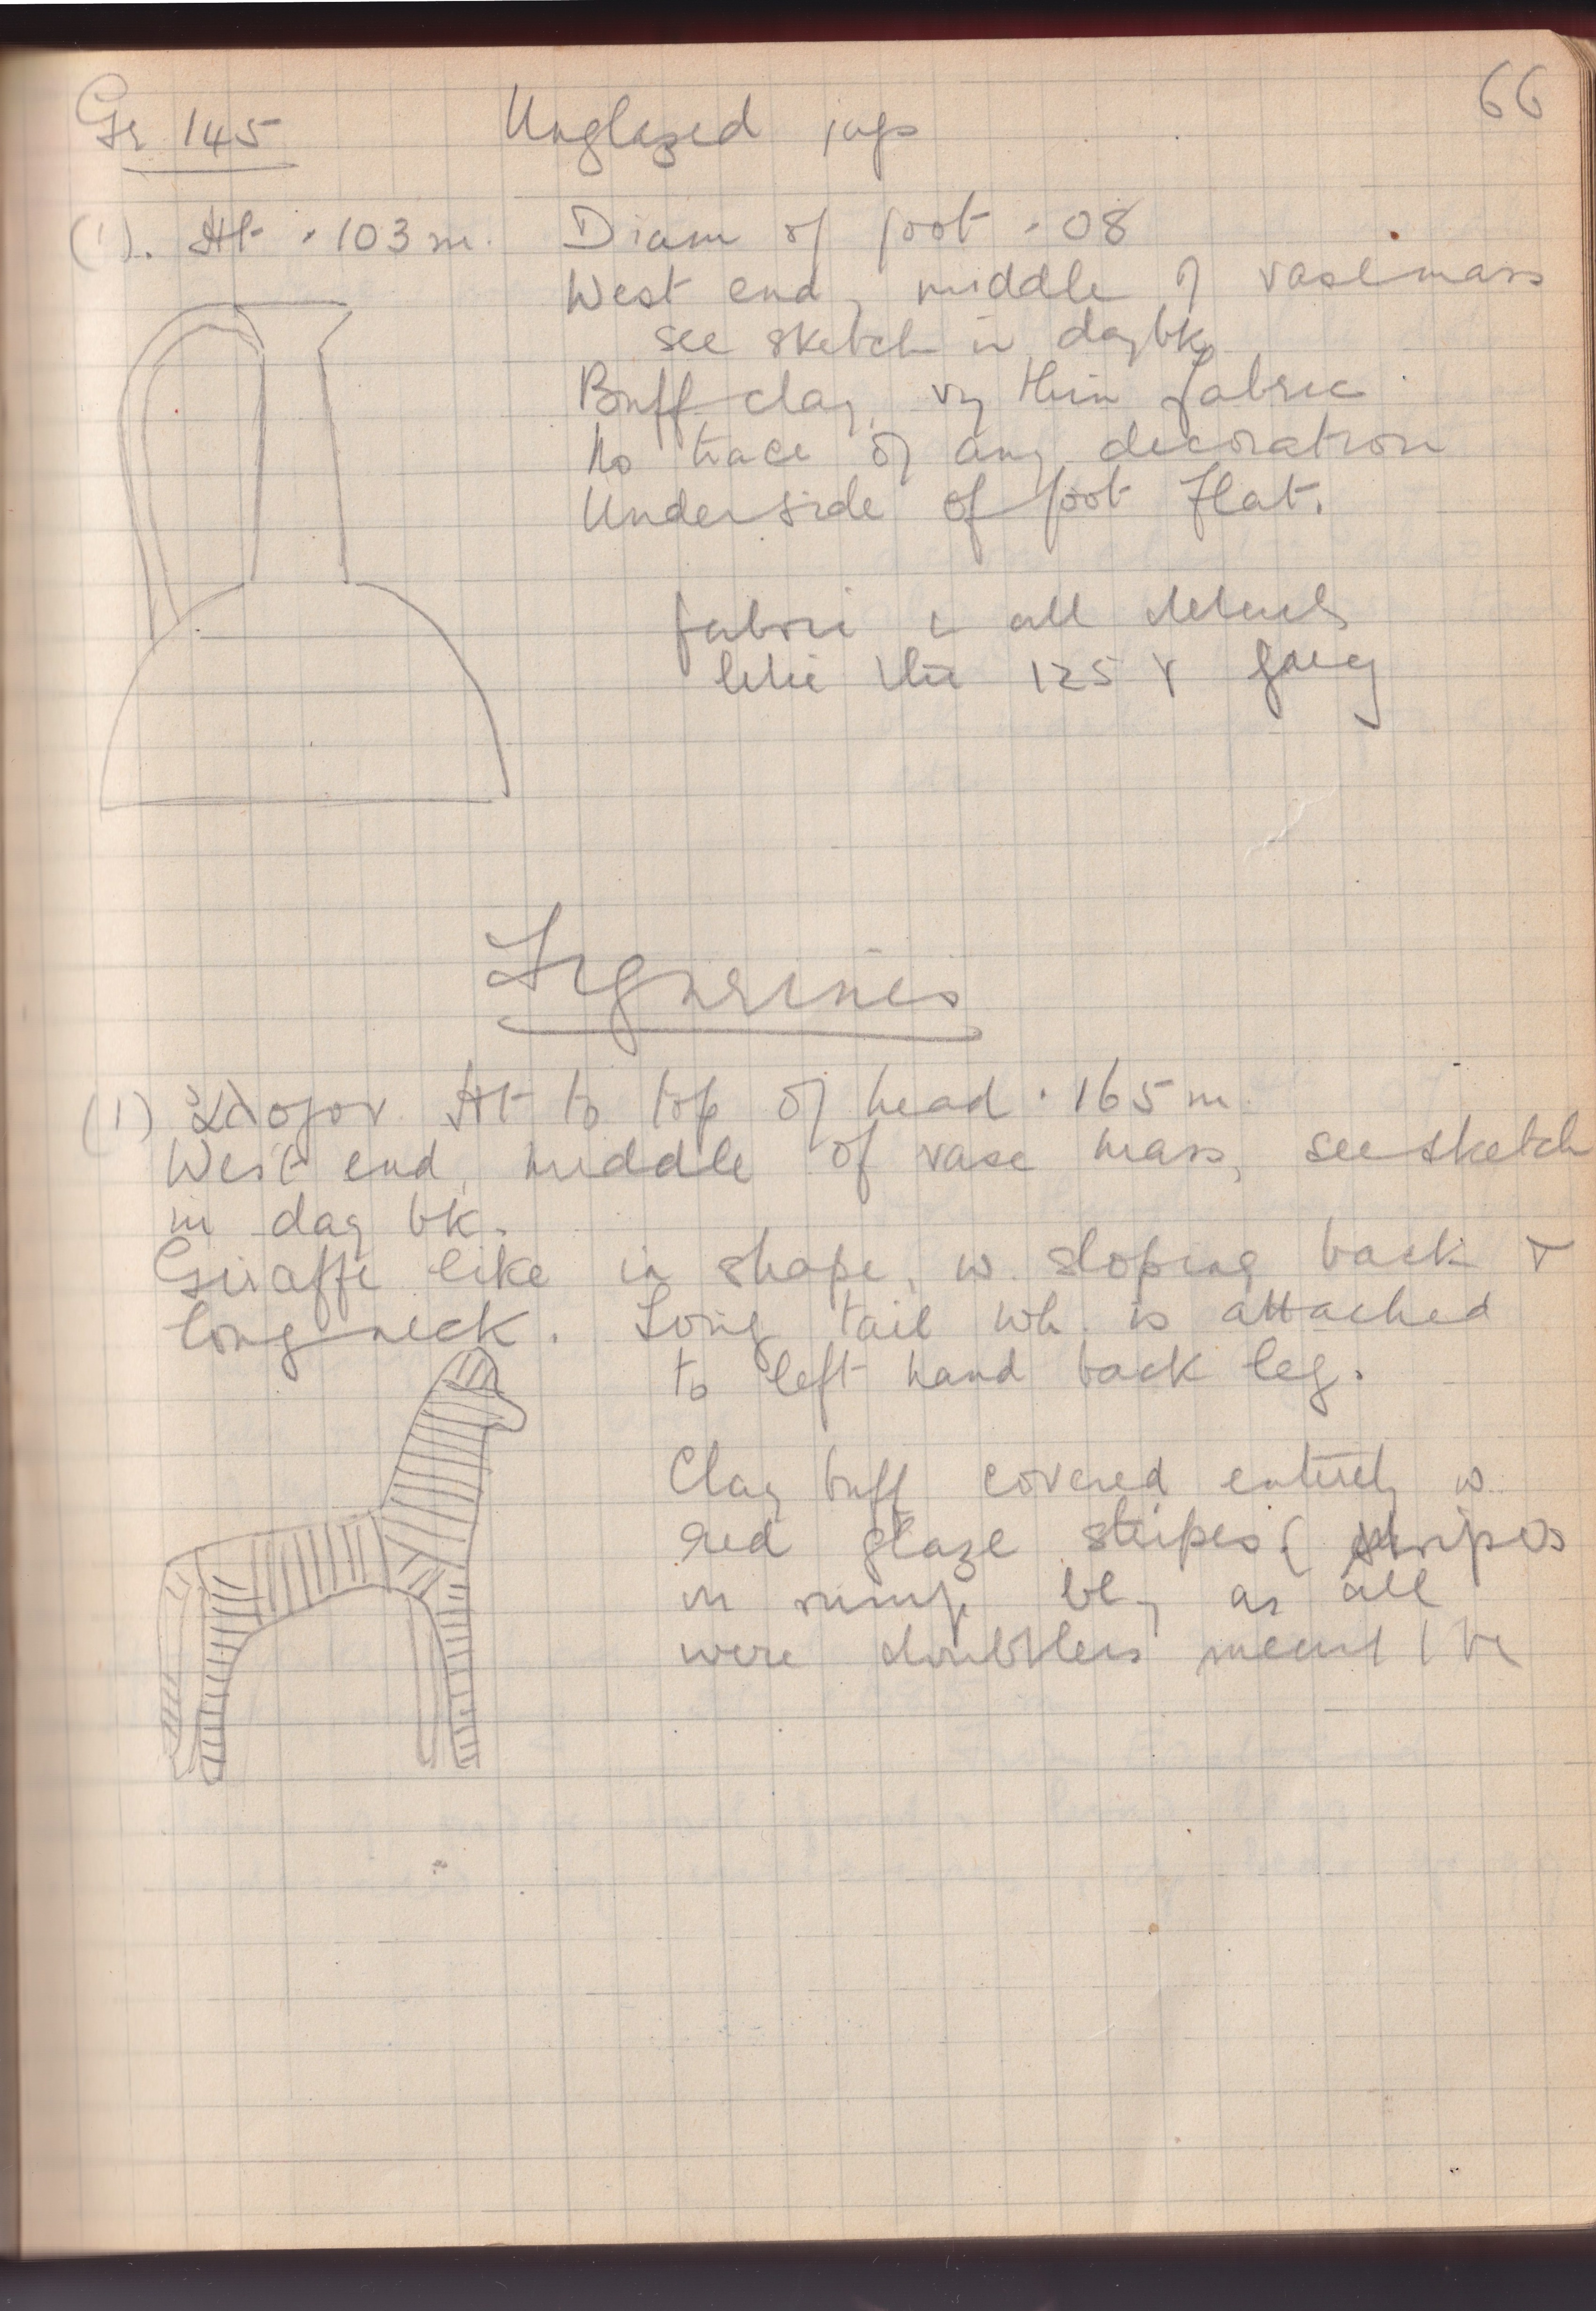 66
Gr 145 Unglazed jugs
(1). Ht .103 m. Diam of foot .08
West end, middle of vase mass
see sketch in day bk
Buff clay, vy thin fabric
No trace of any decoration
Underside of foot flat.
fabric & all details
like the 125
Figurines
(1) Ht to top of head .165 m.
West end, middle of vase mass, see sketch
in day bk.
Giraffe like in shape, w. sloping back &
long neck. Long tail wh. is attached
to left hand back leg.
Clay buff covered entirely w.
red glaze stripes ( stripes
on rump bl, as all
were doubtless meant be